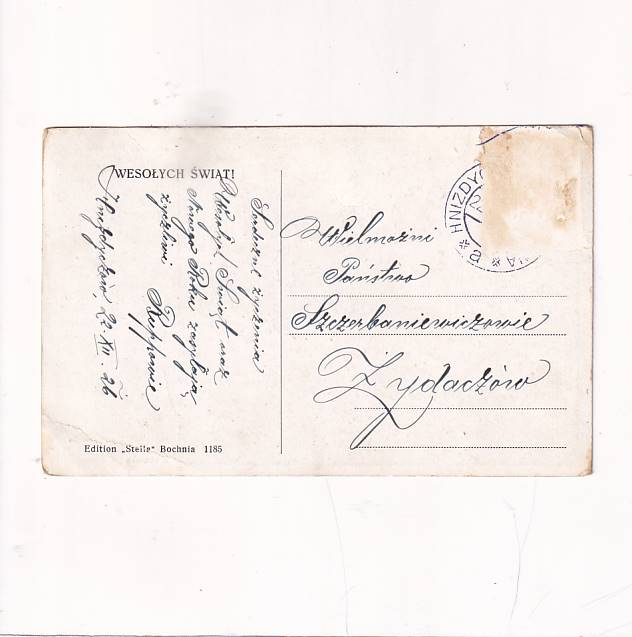 WESOŁYCH ŚWIĄT!
Serdeczne życzenia
Wesołych Świąt oraz
Nowego Roku zasyłają
życzliwi
Ruppowie
Hnizdyczów, 22 XII. 26
Edition „Stella" Bochnia 1185
Wielmożni
Państwo
Szczerbaniewiczowie
Żydaczów
HNIZDYC